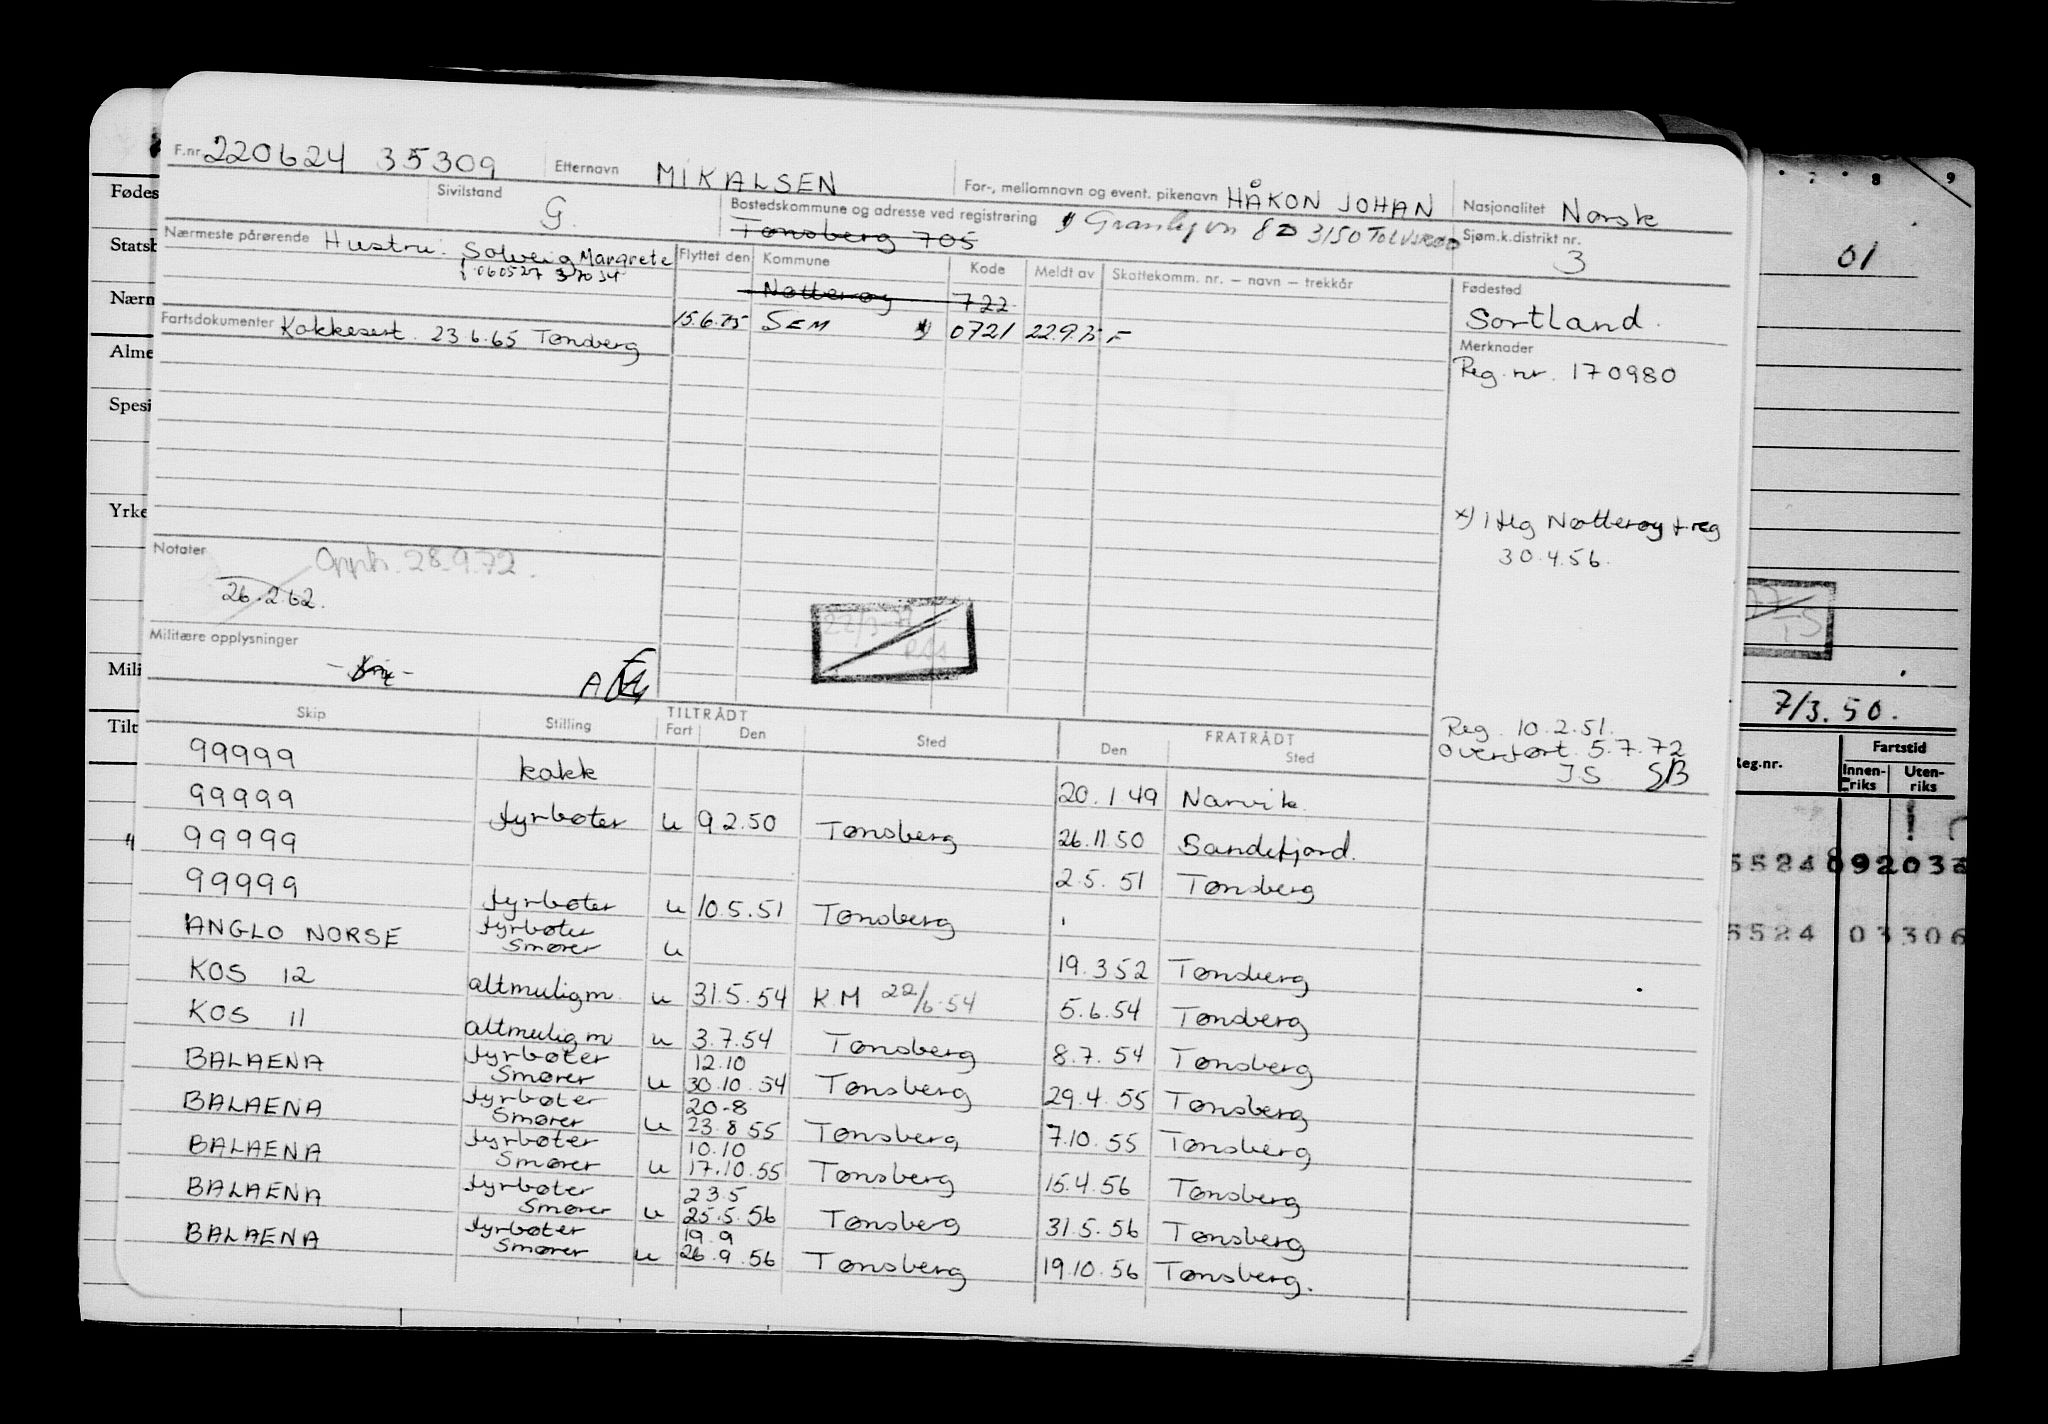 F.nr. 220624 35309 Etternavn MIKALSEN For-, mellomnavn og event. pikenavn HÅKON JOHAN Nasjonalitet Norsk
Sivilstand G. Bostedskommune og adresse ved registrering Tønsberg 705 8D 3150 TOLVSRØD Sjøm.k.distrikt nr. 3
Nærmeste pårørende Hustru: Solveig Margrete
060527 37034
Flyttet den Kommune Kode Meldt av Skattekomm. nr. – navn – trekkår
Nøtterøy 722
15.6.75 SEM 0721 22.9.75 F
Fødested
Sortland.
Fartsdokumenter Kokkesert. 23.6.65 Tønsberg
Merknader
Reg. nr. 170980
x) Nøtterøy reg
30.4.56.
Notater Opph. 28.9.72.
26.2.62.
Militære opplysninger
A
Reg. 10.2.51.
Overført 5.7.72
JS SB
Skip Stilling TILTRÅDT Fart Den Sted FRATRÅDT Den Sted
99999 kokk 20.1 49 Narvik.
99999 fyrbøter u 9 2.50 Tønsberg 26.11.50 Sandefjord.
99999 2.5. 51 Tønsberg
99999 fyrbøter u 10.5.51 Tønsberg
ANGLO NORSE fyrbøter Smører u 19.3 52 Tønsberg
KOS 12 altmuligm. u 31.5.54 K M 22/6-54 5.6.54 Tønsberg
KOS 11 altmuligm u 3.7.54 Tønsberg 8.7. 54 Tønsberg
BALAENA fyrbøter Smører u 12.10 30.10.54 Tønsberg 29.4. 55 Tønsberg
BALAENA fyrbøter Smører u 20-8 23.8 55 Tønsberg 7.10. 55 Tønsberg
BALAENA fyrbøter Smører u 10.10 17.10.55 Tønsberg 15.4. 56 Tønsberg
BALAENA fyrbøter Smører u 23.5 25.5.56 Tønsberg 31.5. 56 Tønsberg
BALAENA fyrbøter Smører u 19.9 26.9.56 Tønsberg 19.10. 56 Tønsberg.
Fødes
Statsb
Nærn
Alme
Spesi
Yrke
Mili
Tilt
8 9
01
TS
7/3.50.
Reg.nr. Fartstid
Innen-riks Uten-riks
5524 092036
5524 03306